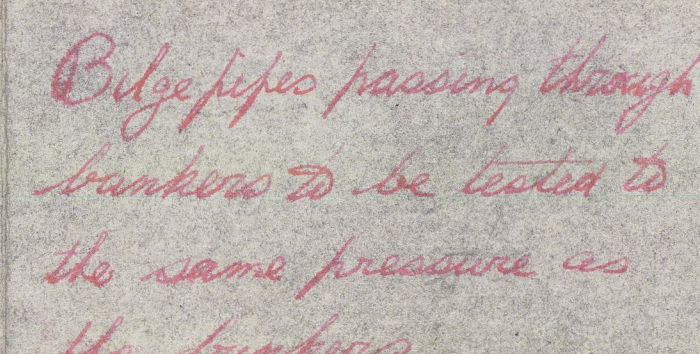 Bilge pipes passing through
bunkers to be tested to
the same pressure as
the bunkers